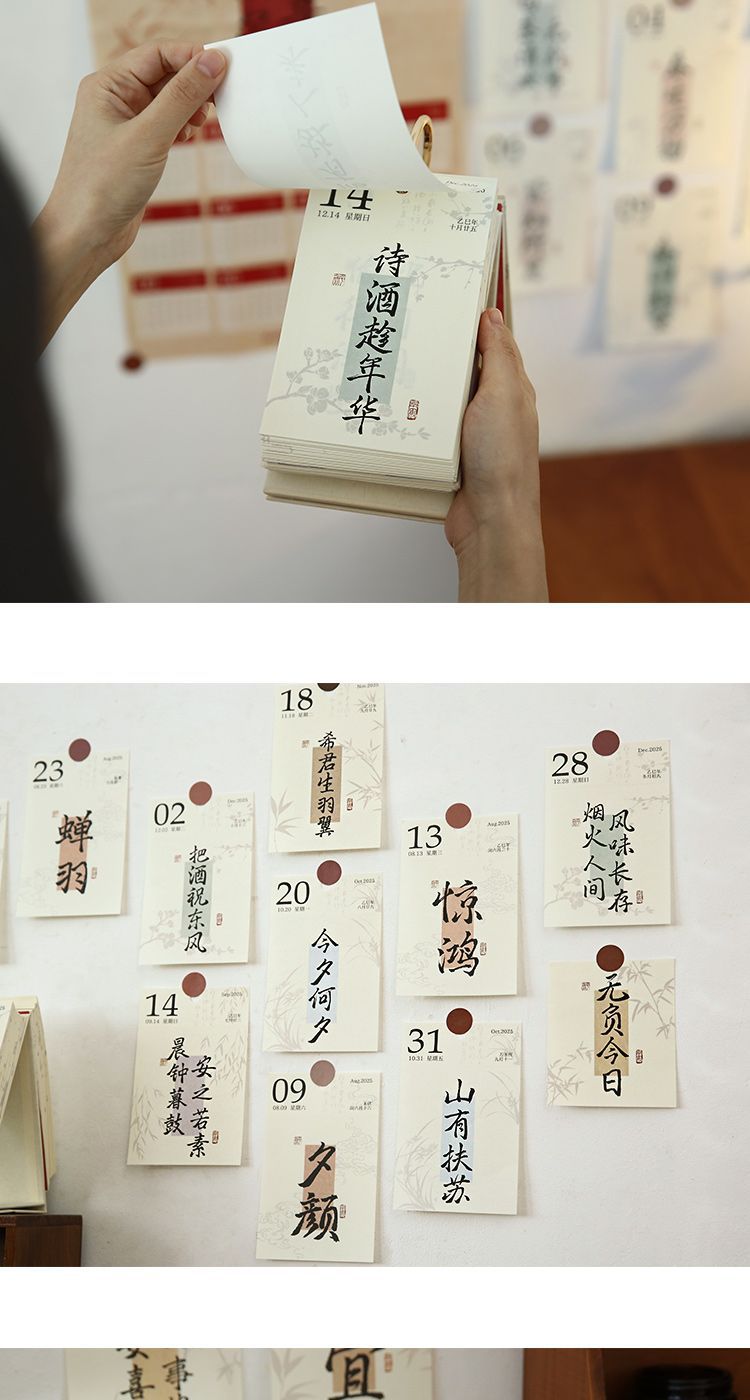 14
12.14 星期日
乙巳年
十月廿五
诗酒趁年华
18
11.18 星期二
Nov.2025
乙巳年
九月廿九
希君生羽翼
23
08.23 星期六
Aug.2025
蝉羽
02
12.02 星期二
Dec.2025
把酒祝东风
20
10.20 星期一
Oct.2025
乙巳年
八月廿九
今夕何夕
13
08.13 星期三
Aug.2025
乙巳年
闰六月二十
惊鸿
28
12.28 星期日
Dec.2025
乙巳年
冬月初九
烟火人间
风味长存
14
09.14 星期日
Sep.2025
乙巳年
七月廿三
晨钟暮鼓
安之若素
09
08.09 星期六
Aug.2025
闰六月十六
夕颜
31
10.31 星期五
Oct.2025
九月十一
山有扶苏
无负今日
喜
事
宜